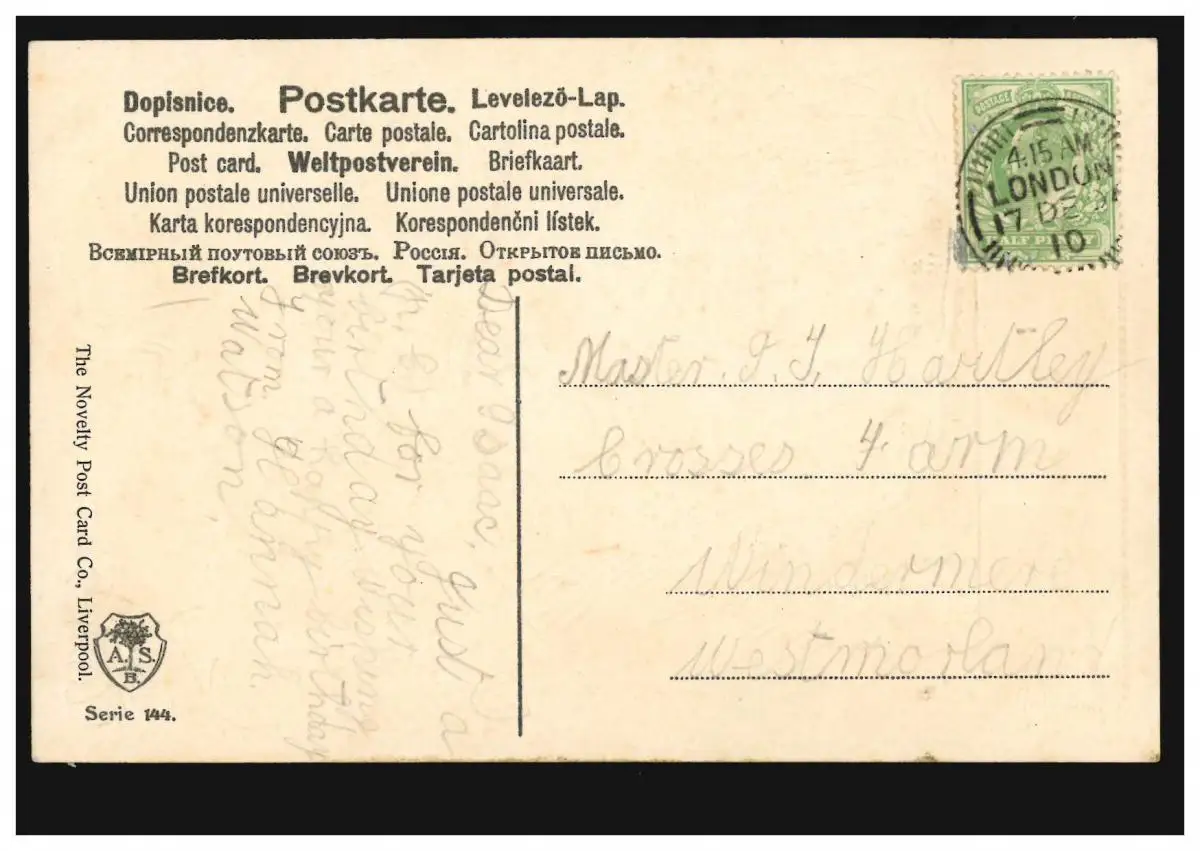 Dopisnice. Postkarte. Levelező-Lap.
Correspondenzkarte. Carte postale. Cartolina postale.
Post card. Weltpostverein. Briefkaart.
Union postale universelle. Unione postale universale.
Karta korespondencyjna. Korespondenčni lístek.
Всемірный поутовый союзъ. Россія. Открытое письмо.
Brefkort. Brevkort. Tarjeta postal.
POSTAGE
HALF PENNY
4.15 AM
LONDON
17 DE
10
Master. I. I. Hartley
Crosses Farm
Windermere
Westmorland
Dear Isaac, just a
for your
birthday wishing
your a happy birthday
from Hannah
Watson.
The Novelty Post Card Co., Liverpool.
A. S.
B.
Serie 144.